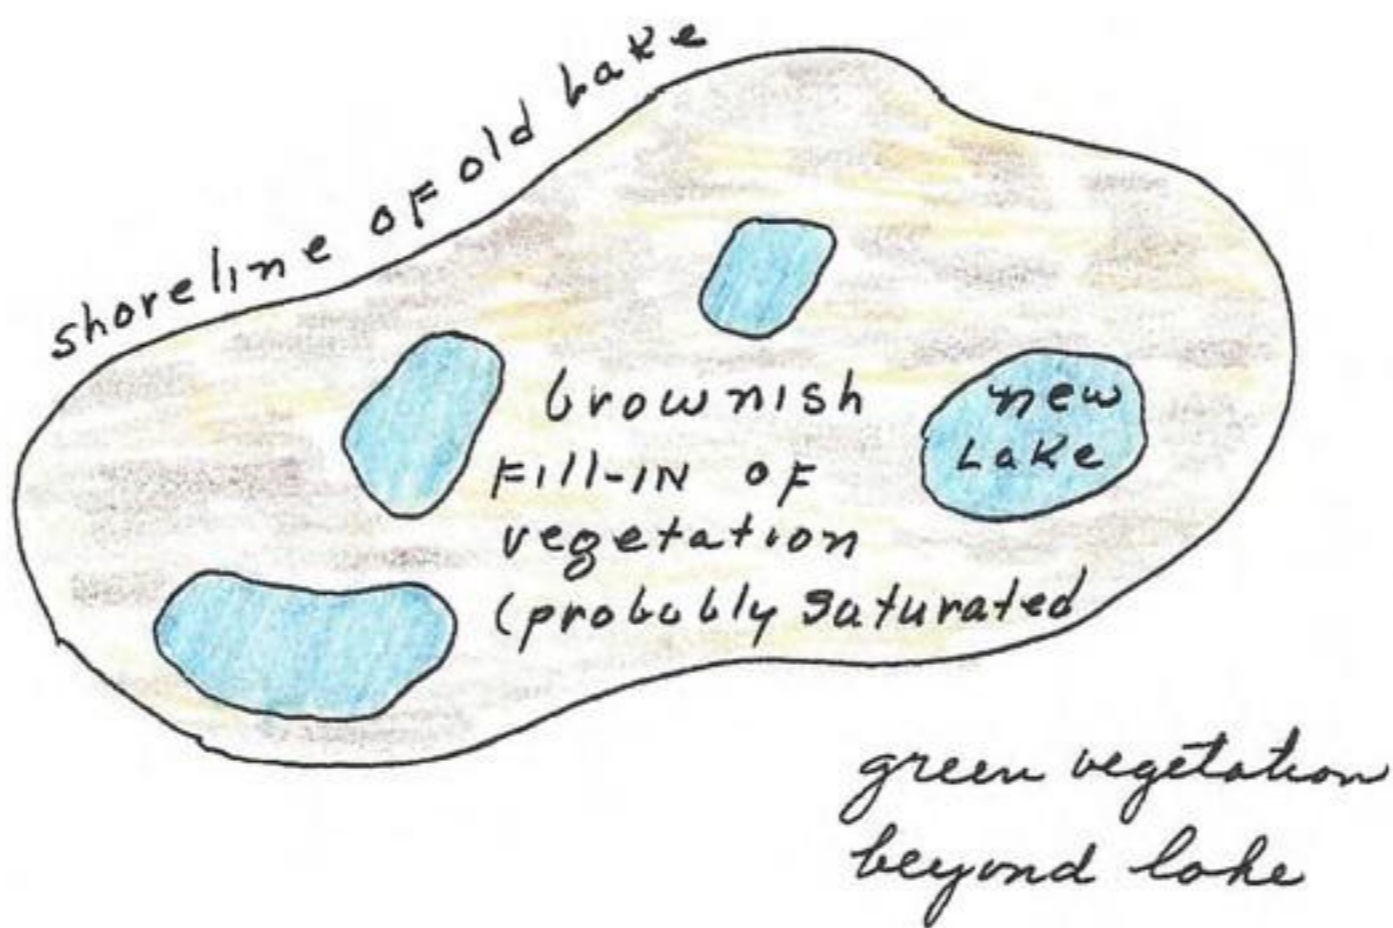 shoreline of old Lake
brownish
Fill-IN OF
vegetation
(probably saturated
new
Lake
green vegetation
beyond lake